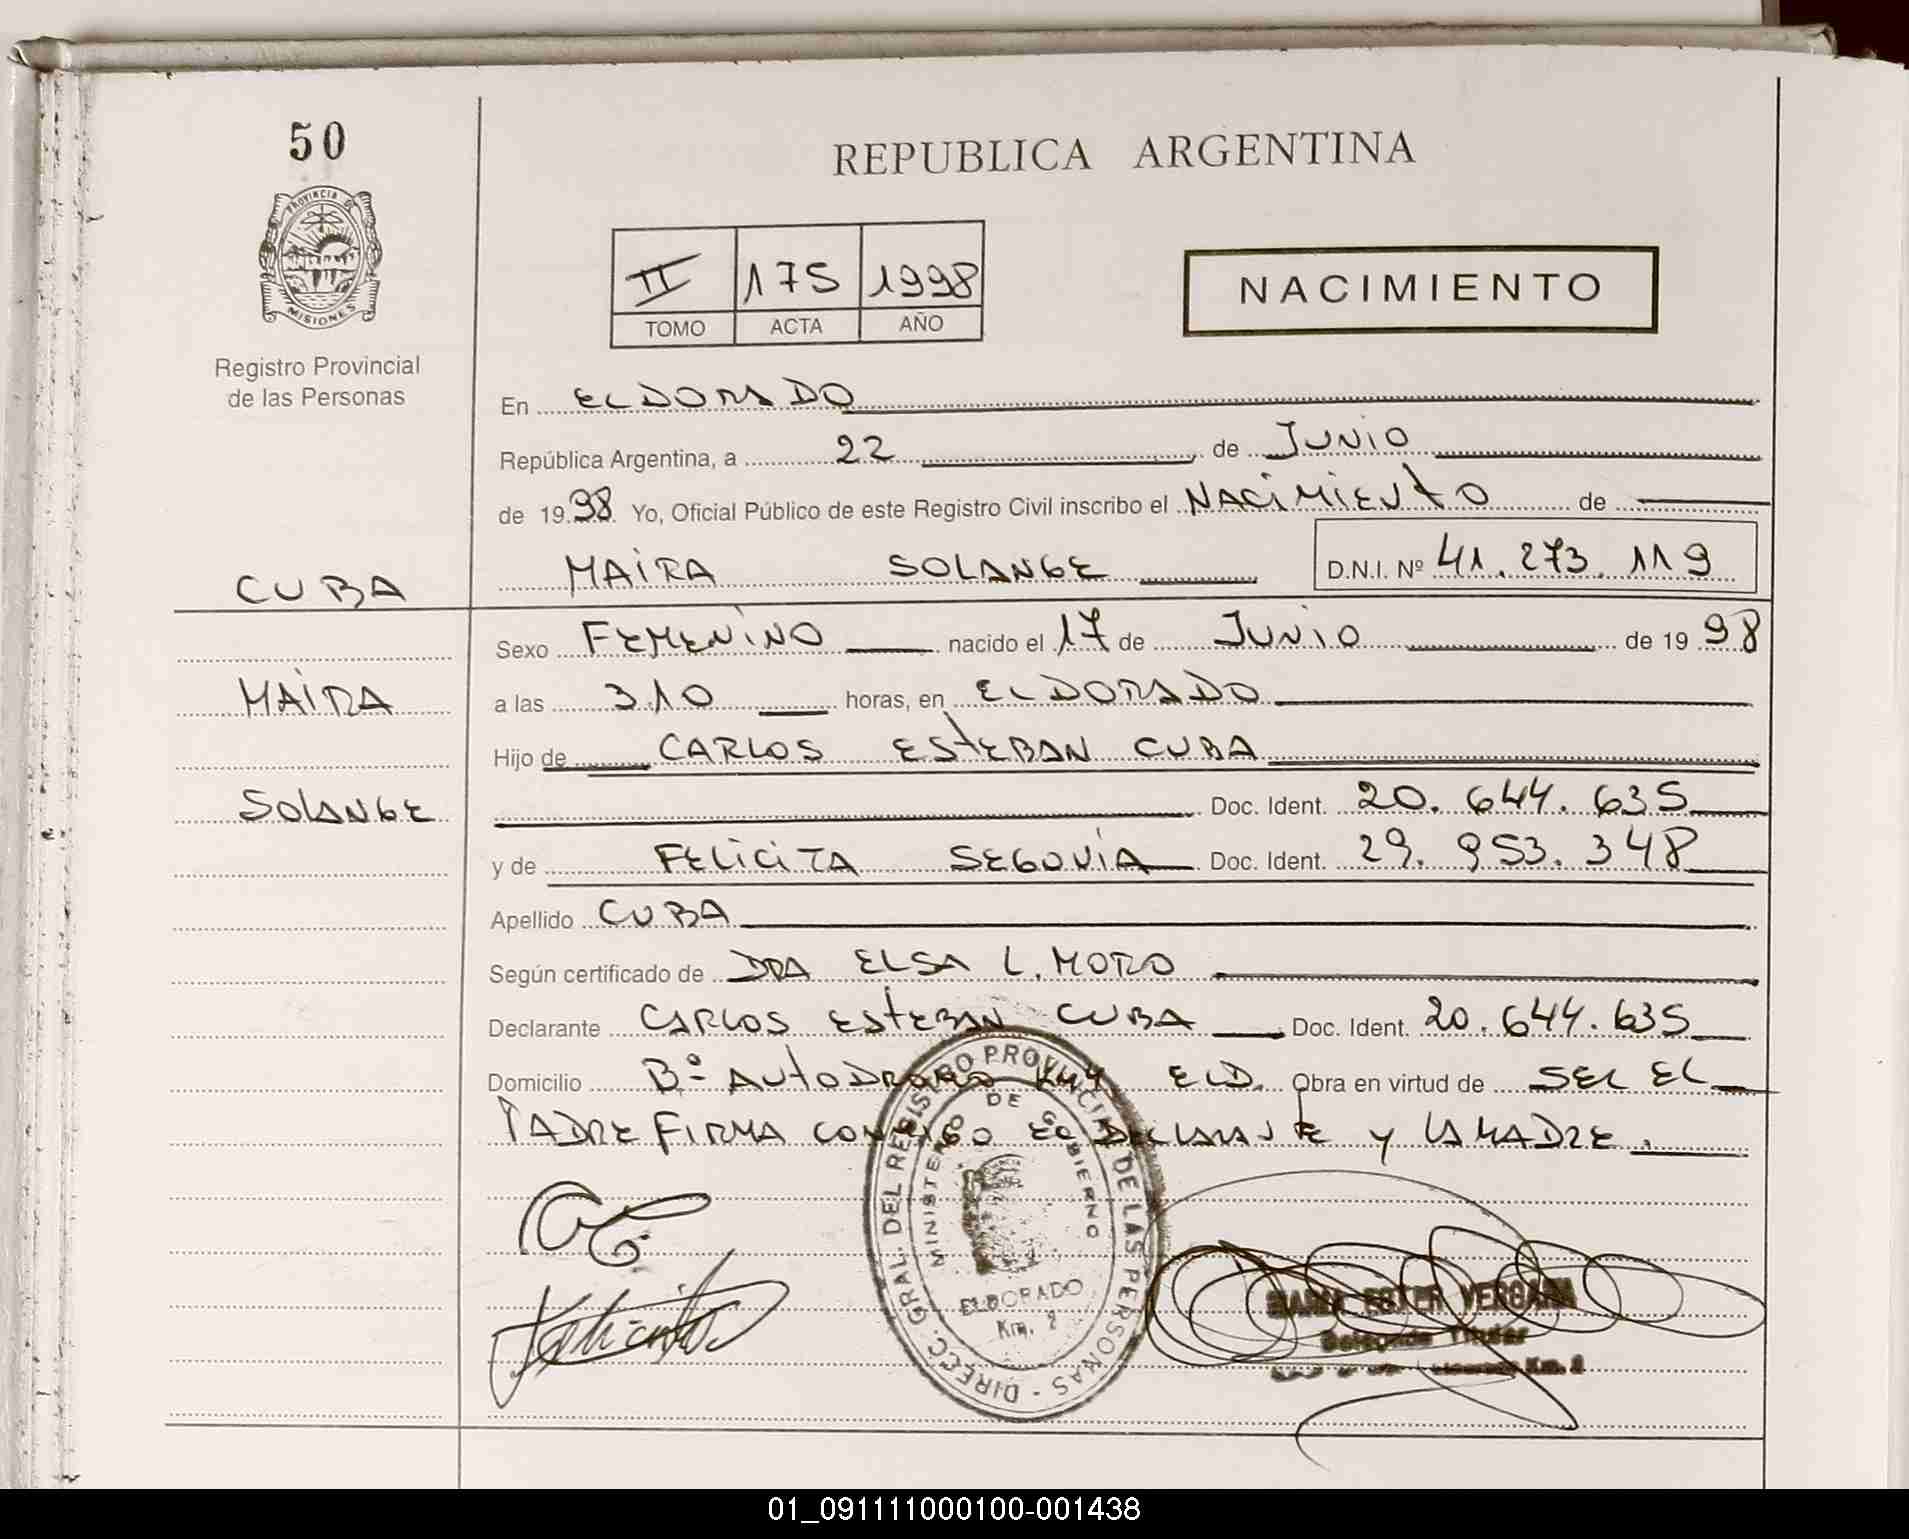 50
PROVINCIA DE
MISIONES
Registro Provincial
de las Personas
REPUBLICA ARGENTINA
II 175 1998
TOMO ACTA AÑO
NACIMIENTO
En ELDORADO
República Argentina, a 22 de JUNIO
de 1998 Yo, Oficial Público de este Registro Civil inscribo el NACIMIENTO de
MAIRA SOLANGE D.N.I. Nº 41.273.119
CUBA
MAIRA
SOLANGE
Sexo FEMENINO nacido el 17 de JUNIO de 1998
a las 3.10 horas, en ELDORADO
Hijo de CARLOS ESTEBAN CUBA
Doc. Ident. 20.644.635
y de FELICITA SEGOVIA Doc. Ident. 29.953.348
Apellido CUBA
Según certificado de DRA ELSA L. MORO
Declarante CARLOS ESTEBAN CUBA Doc. Ident. 20.644.635
Domicilio Bº AUTODROMO KM4 ELD. Obra en virtud de SER EL
PADRE FIRMA CONMIGO EL DECLARANTE Y LA MADRE.
DIREC. GRAL. DEL REGISTRO PROVINCIAL DE LAS PERSONAS
MINISTERIO DE GOBIERNO
ELDORADO
Km. 2
MARIA ESTER VERGARA
Delegada Titular
Km. 2
01_091111000100-001438